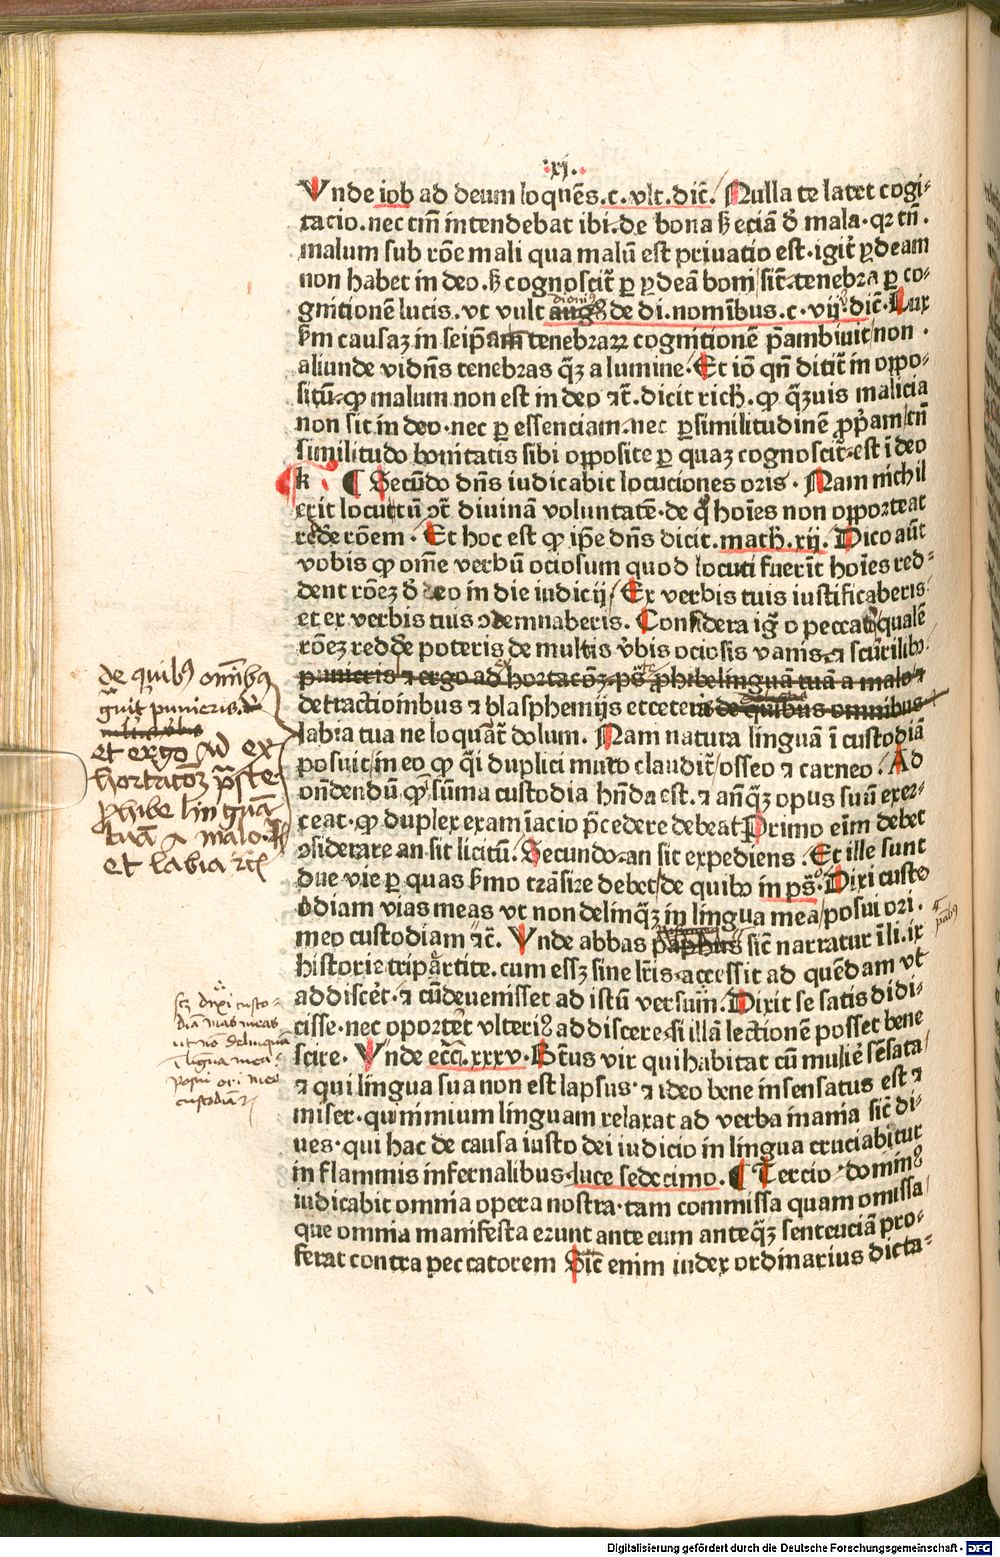 :xj.
Vnde iob ad deum loquẽs.c.vlt.dic̃. Nulla te latet cogi⸗
tacio.nec tm̃ intendebat ibi.de bona ß eciã đ mala.qꝛ tñ.
malum sub rõe mali qua malũ est priuatio est.igit̃ ꝑ deam
non habet in deo.ß cognoscit̃ ꝑ ꝑ deã boni sic̃ tenebra ꝑ co⸗
gnitionẽ lucis.vt vult dionisius de di.nomĩbus.c.vij.dic̃.Lux
ẜm causaꝫ in seip̃am tenebraꝝ cognitionẽ p̃ambiuit non.
aliunde vidñs tenebras q̃ꝫ a lumine.Et iõ qñ dicit̃ in oppo⸗
sitũ.ꝙ malum non est in deo ⁊c̃.dicit rich̃.ꝙ q̃ꝫuis malicia
non sit in deo.nec ꝑ essenciam.nec ꝑ similitudinẽ ꝓp̃am/tñ
similitudo bonitatis sibi opposite ꝑ quaꝫ cognoscit̃.est ĩ deo
k ¶ Secũdo dñs iudicabit locuciones oris. Nam nichil
erit locutũ ↄt̃ diuinã voluntatẽ.de q̃ hoĩes non opporteat
red̃e rõem. Et hoc est ꝙ ip̃e dñs dicit.math̃.xij. Dico aũt
vobis ꝙ om̃e verbũ ociosum quod locuti fuerĩt hoĩes red⸗
dent rõeꝫ đ eo in die iudicij/ Ex verbis tuis iustificaberis
et ex verbis tuis ↄdemnaberis. Considera ig̃ o peccator qualẽ
rõeꝫ red̃de poteris de multis v̓bis ociosis vanis.⁊ scurrilibꝫ.
punieris ⁊ ergo ad hortacõꝫ.ps̃ ꝓhibe linguã tuã a malo ⁊
detractionibus ⁊ blasphemijs et ceteris de quibus omnibus
labia tua ne loquãt̃ dolum. Nam natura linguã ĩ custodiã
posuit/in eo ꝙ q̃i duplici muro claudit̃/osseo ⁊ carneo. Ad
oñdendũ ꝙ sũma custodia hñda est.⁊ añq̃ꝫ opus suũ exer⸗
ceat.ꝙ duplex examĩacio p̃cedere debeat Primo eĩm debet
ↄsiderare an sit licitũ. Secundo.an sit expediens. Et ille sunt
due vie ꝑ quas ẜmo trãsire debet/de quibꝫ in ps̃. Dixi custo
ođiam vias meas vt non delinq̃ꝫ in lingua mea/posui ori.
meo custodiam ⁊c̃. Vnde abbas paphus sic̃ narratur ĩ li.ix
historie tripartite.cum essꝫ sine lr̃is.accessit ad quẽdam vt̃
addiscet̃.⁊ cũ deuenisset ad istũ versum. Dixit se satis didi⸗
cisse.nec oportet vlteriꝰ addiscere.si illã lectionẽ posset bene
scire. Vnde ecc̃i.xxxv. Btũs vir qui habitat cũ muliẽ sẽsata/
⁊ qui lingua sua non est lapsus.⁊ ideo bene insensatus est ⁊
miser.qui nimium linguam relaxat ad verba inania sic̃ di⸗
ues.qui hac de causa iusto dei iudicio in lingua cruciabitur
in flammis infernalibus.luce sedecimo. ¶ Tercio.dominꝰ
iudicabit omnia opera nostra.tam commissa quam omissa/
que omnia manifesta erunt ante eum anteq̃ꝫ sentenciã pro⸗
ferat contra peccatorem Sic̃ enim iudex ordinarius dicta⸗
de quibꝰ om̃ibꝫ
g̃uit̃ punieris.
et ergo ad ex
hortacõꝫ p̃ste
ꝓhibe linguã
tuã a malo.
et labia ⁊c̃
scꝫ dixi custo⸗
diã vias meas
ut nõ delinquã
ĩ ligua mea:
posui ori meo
custodiã ⁊c̃
Digitalisierung gefördert durch die Deutsche Forschungsgemeinschaft - DFG